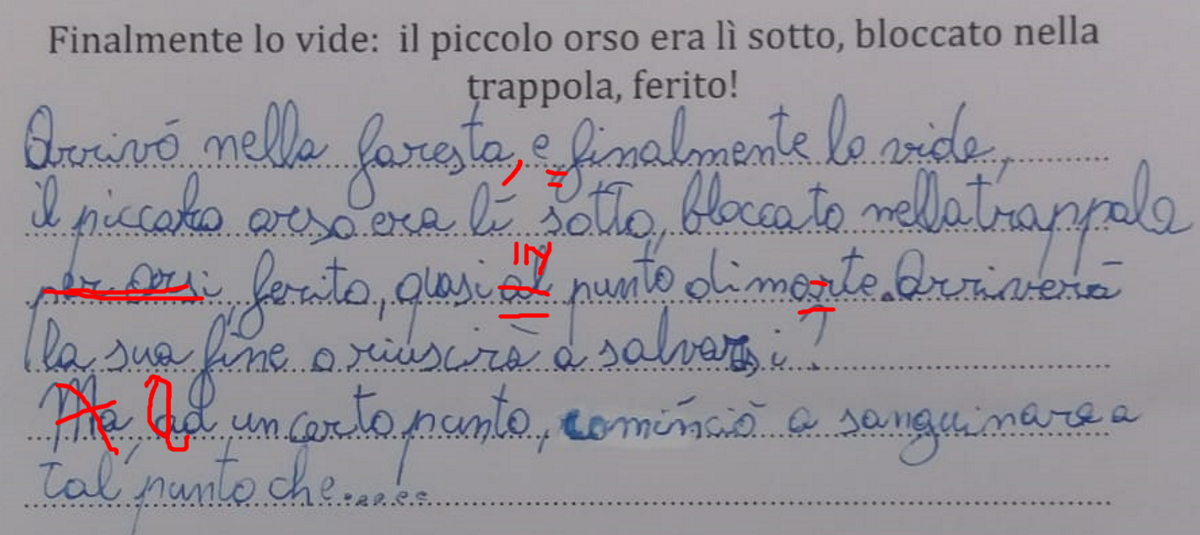 Finalmente lo vide: il piccolo orso era lì sotto, bloccato nella
trappola, ferito!
Arrivò nella foresta, e finalmente lo vide,
il piccolo orso era lì sotto, bloccato nella trappola
per orsi, ferito, quasi al in punto di morte. Arriverà
la sua fine o riuscirà a salvarsi?
Ma, ad un certo punto, cominciò a sanguinare a
tal punto che.......